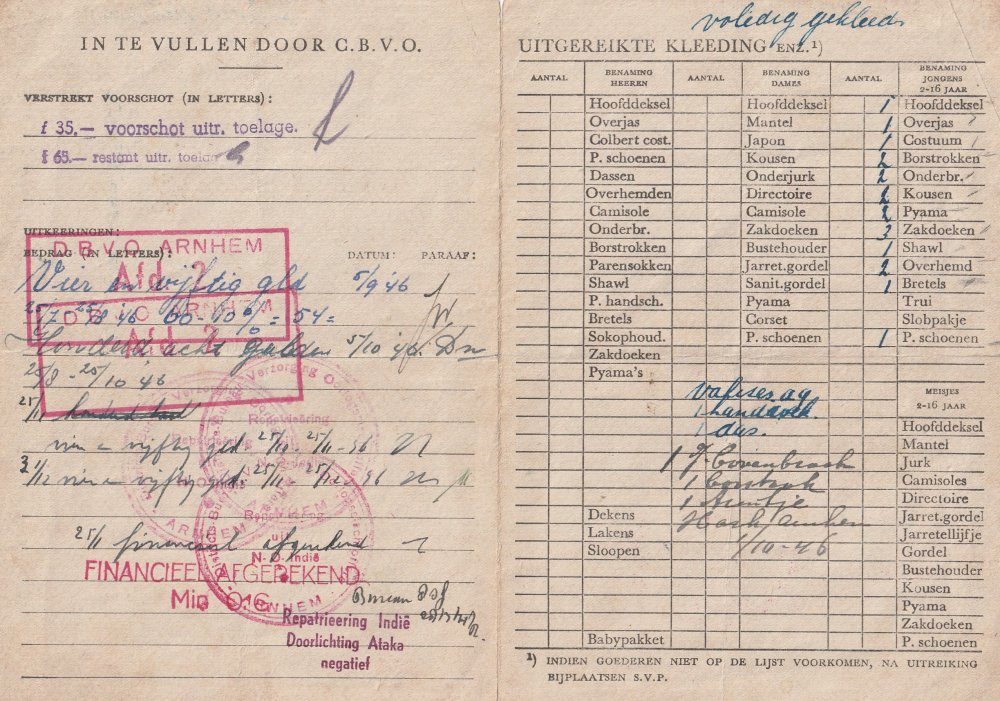 IN TE VULLEN DOOR C.B.V.O.
VERSTREKT VOORSCHOT (IN LETTERS):
f 35.— voorschot uitr. toelage.
f 65.— restant uitr. toela
UITKEERINGEN:
BEDRAG (IN LETTERS): DATUM: PARAAF:
D.B.V.O. ARNHEM
Afd. 2
Vier en vijftig gld 5/9 46
D.B.V.O. ARNHEM
Afd. 2
25/7 - 25/8 46 60 - 10% = 54=
Honderd acht gulden 5/10 46. Dn
25/8 - 25/10 46
25/11
vier en vijftig gld 25/10 - 25/11 - 46
vier en vijftig gld. 25/11 - 25/12 46
25/1 financieel afgerekend
N.-O. Indië
FINANCIEEL AFGEREKEND
Min O.G.
ARNHEM
Bureau
Repatrieering Indië
Doorlichting Ataka
negatief
voledig gekleed.
UITGEREIKTE KLEEDING ENZ.¹)
AANTAL BENAMING HEEREN AANTAL BENAMING DAMES AANTAL BENAMING JONGENS 2-16 JAAR
Hoofddeksel Hoofddeksel 1 Hoofddeksel
Overjas Mantel 1 Overjas
Colbert cost. Japon 1 Costuum
P. schoenen Kousen 2 Borstrokken
Dassen Onderjurk 2 Onderbr.
Overhemden Directoire 2 Kousen
Camisole Camisole 2 Pyama
Onderbr. Zakdoeken 3 Zakdoeken
Borstrokken Bustehouder 1 Shawl
Parensokken Jarret.gordel 2 Overhemd
Shawl Sanit.gordel 1 Bretels
P. handsch. Pyama Trui
Bretels Corset Slobpakje
Sokophoud. P. schoenen 1 P. schoenen
Zakdoeken
Pyama's
MEISJES
2-16 JAAR
1 handdoek.
1 das.
Hoofddeksel
Mantel
Jurk
Camisoles
Directoire
Dekens Jarret.gordel
Lakens Jarretellijfje
Sloopen 1/10-46 Gordel
Bustehouder
Kousen
Pyama
Zakdoeken
Babypakket P. schoenen
¹) INDIEN GOEDEREN NIET OP DE LIJST VOORKOMEN, NA UITREIKING
BIJPLAATSEN S.V.P.